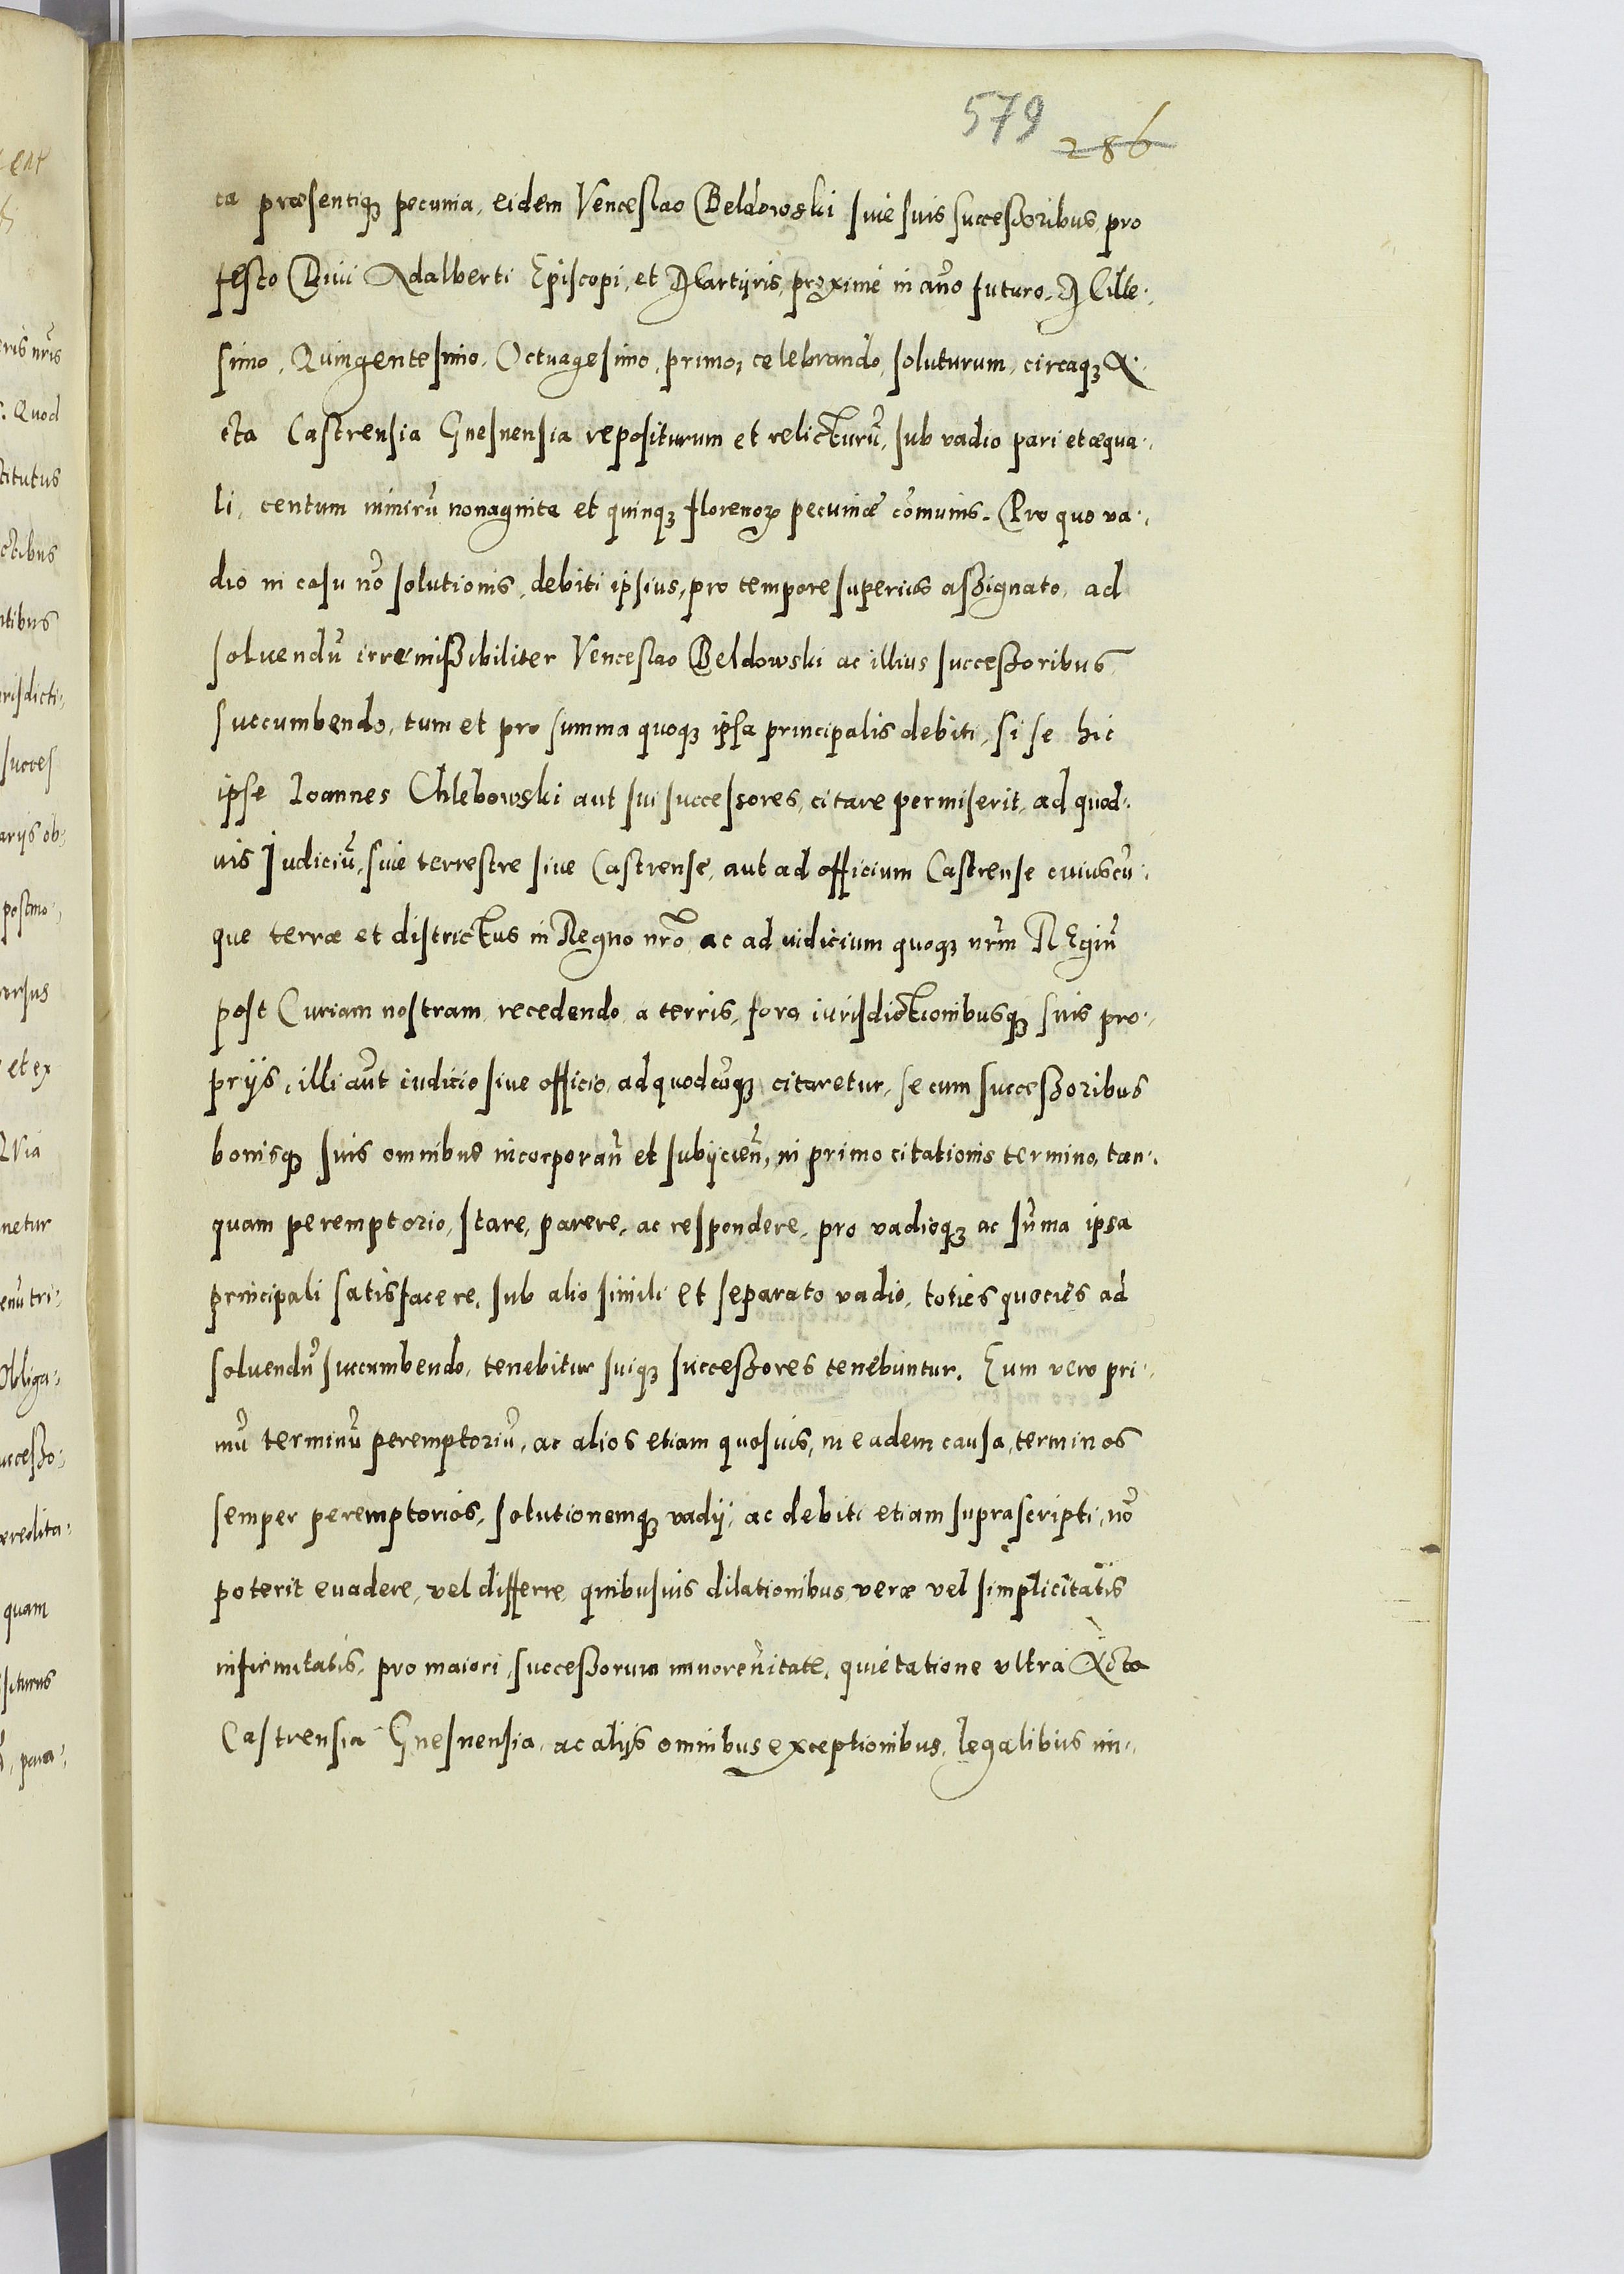 579 286
ta præsentiq₃ pecunia, eidem Venceslao Beldowski siue suis successoribus, pro
festo Diui Adalberti Episcopi, et Martÿris, proxime in año futuro. Mille.,
simo, Quingentesimo, Octuagesimo, primo, celebrando, soluturum, circaq₃ A.
cta Castrensia Gnesnensia repositurum et relicturū, sub vadio pari et æqua.,
li, centum nimirū nonaginta et quinq₃ florenoꝝ pecuniæ cōmunis. Pro quo va.,
dio in casu nō solutionis, debiti ipsius, pro tempore superius assignato, ad
soluendū irremissibiliter Venceslao Beldowski ac illius successoribus,
succumbendo, tum et pro summa quoq₃ ipsa principalis debiti, si se hic
ipse Ioannes Chlebowski aut sui successores, citare permiserit, ad quod.
uis Iudiciū, siue terrestre siue Castrense, aut ad officium Castrense cuiuscū.
que terræ et districtus in Regno nrō ac ad iudicium quoq₃ nrm̄ Regiū
post Curiam nostram, recedendo a terris, foro iurisdictionibusq₃ suis pro.,
prijs, illi aūt iudicio siue officio, ad quodcūq₃ citaretur, se cum successoribus
bonisq₃ suis omnibus incorporañ et subijcieñ, in primo citationis termino, tan.
quam peremptorio, stare, parere, ac respondere, pro vadioq₃ ac sūma ipsa
principali satisfacere, sub alio simili et separato vadio, toties quoties ad
soluendū succumbendo, tenebitur suiq₃ successores tenebuntur. Eum vero pri.,
mū terminū peremptoriū, ac alios etiam quosuis, in eadem causa, terminos
semper peremptorios, solutionemq₃ vadij, ac debiti etiam suprascripti, nō
poterit euadere, vel differre, quibusuis dilationibus, veræ vel simplicis
infirmitatis, pro maiori, successorum minorennitate, quietatione vltra Acta
Castrensia Gnesnensia, ac alijs omnibus exceptionibus, legalibus im.,